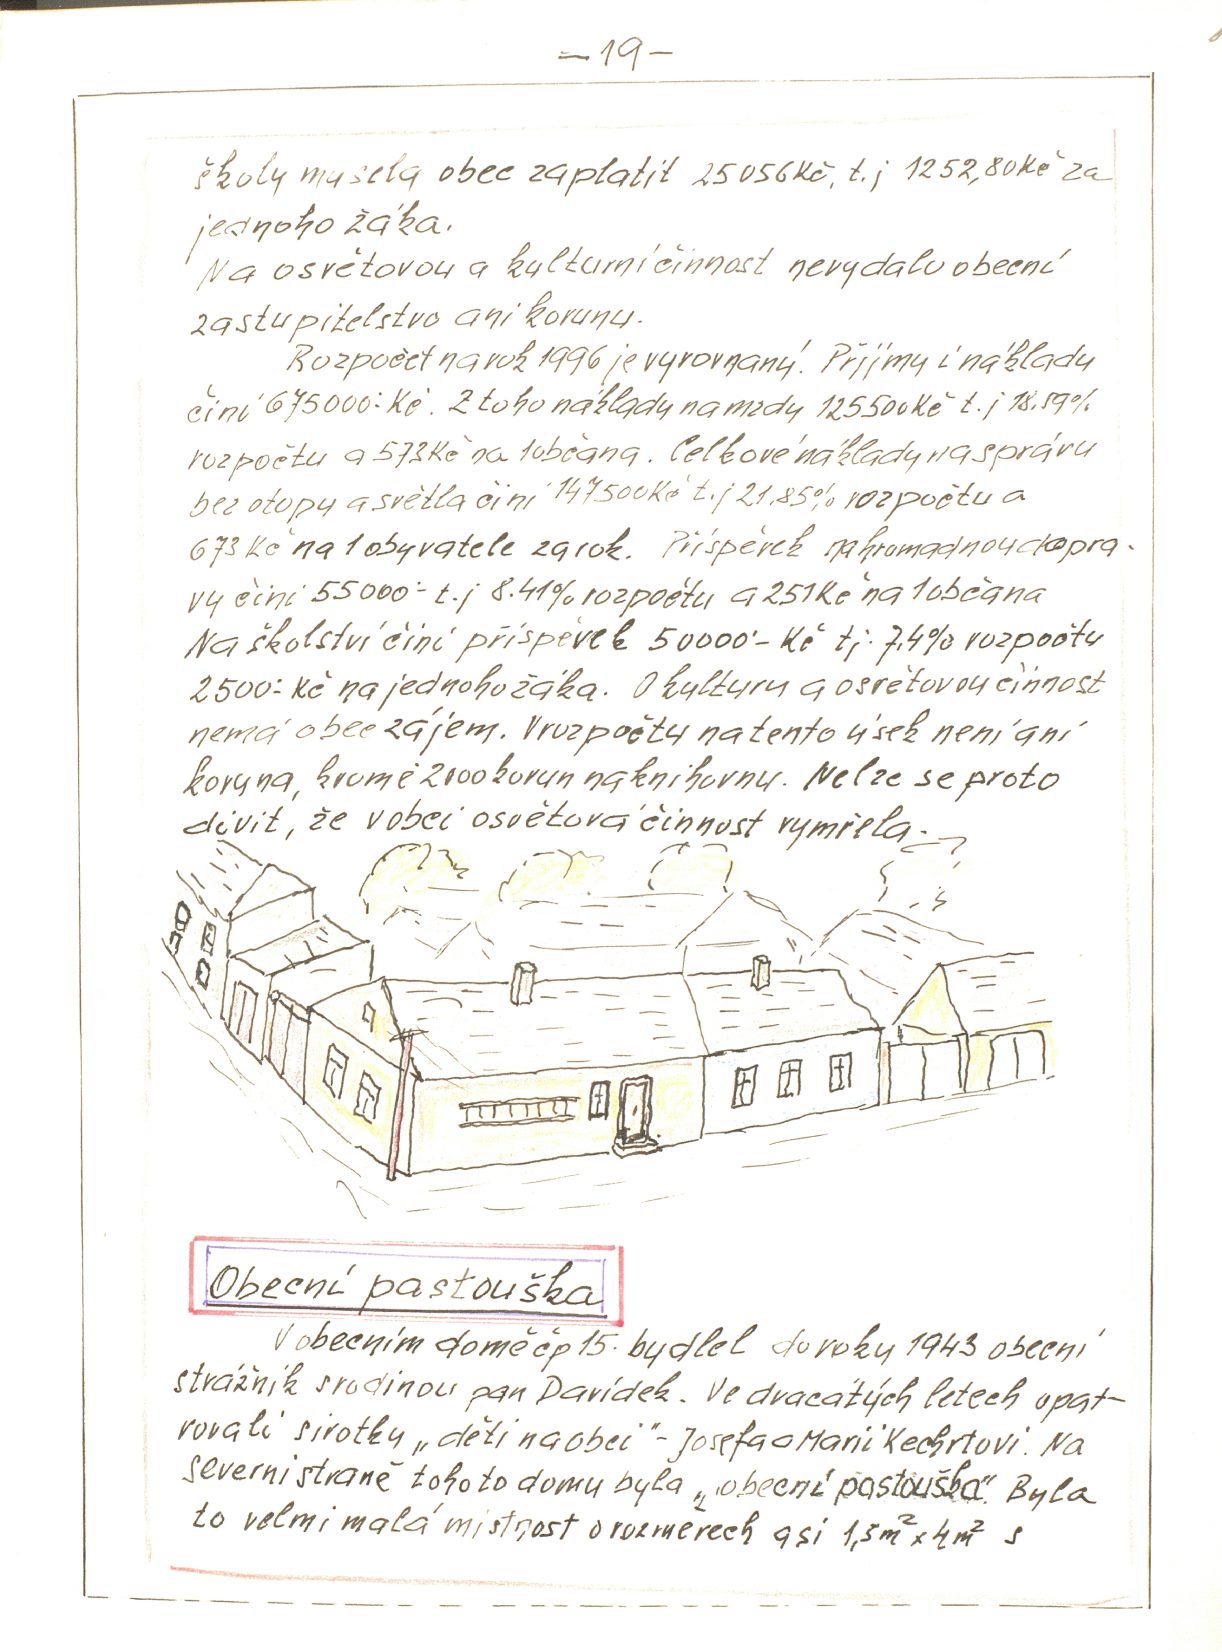 —19—
školy musela obec zaplatit 25056Kč, t.j 1252,80Kč za
jednoho žáka.
Na osvětovou a kulturní činnost nevydalo obecní
zastupitelstvo ani korunu.
Rozpočet na rok 1996 je vyrovnaný. Příjmy i náklady
činí 675000:Kč. Z toho náklady na mzdy 125500Kč t.j 18.59%
rozpočtu a 573Kč na 1občana. Celkové náklady na správu
bez otopu a světla činí 147500Kč t.j 21.85% rozpočtu a
673 Kč na 1 obyvatele za rok. Příspěvek na hromadnou dopra-
vu činí 55000:- t.j 8.41% rozpočtu a 251Kč na 1občana
Na školství činí příspěvek 50000:- Kč tj. 7,4% rozpočtu
2500:- Kč na jednoho žáka. O kulturu a osvětovou činnost
nemá obec zájem. V rozpočtu na tento úsek není ani
koruna, kromě 2000 korun na knihovnu. Nelze se proto
divit, že v obci osvětová činnost vymřela.
Obecní pastouška
V obecním domě čp 15. bydlel do roku 1943 obecní
strážník s rodinou pan Davídek. Ve dvacátých letech opat-
rovali sirotky „děti na obci" - Josefa a Marii Kechrtovi. Na
severní straně tohoto domu byla „obecní pastouška". Byla
to velmi malá místnost o rozměrech asi 1,5m² x 4m² s